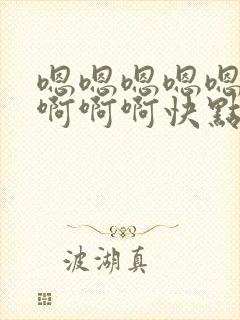 嗯嗯嗯嗯嗯
啊啊啊快點
波湖真